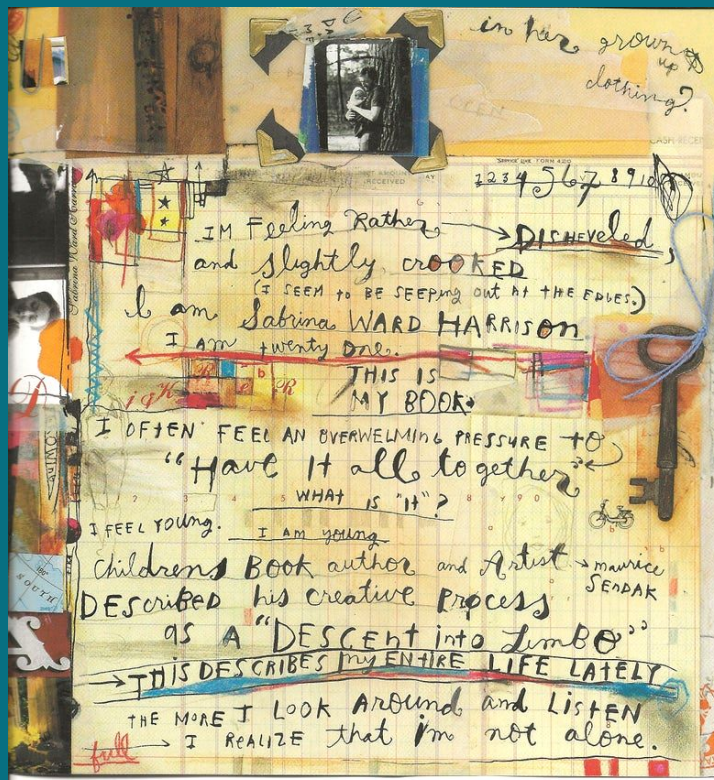 in her grown
up
clothing?
OPEN
CASH RECEI
"SERVICE" LINE FORM 4G0
RECEIVED
1 2 3 4 5 6 7 8 9 10
IM Feeling Rather → DISHEVELED,
and slightly crooked
(I SEEM TO BE SEEPING OUT AT THE EDGES.)
I am Sabrina WARD HARRISON
I AM twenty one.
THIS IS
MY BOOK.
I OFTEN FEEL AN OVERWELMING PRESSURE TO
"Have It all together"
WHAT IS "it"?
I FEEL YOUNG.
I AM young
Childrens Book author and Artist → maurice
SENDAK
DEscribED his creative Process
as A "DESCEnt into Limbo"
→ THIS DESCRIBES MY ENTIRE LIFE LATELY
THE MORE I LOOK AROUnD and LISTEN
full → I REALIZE that i'm not alone.
Sabrina Ward Harrison
SOUTH